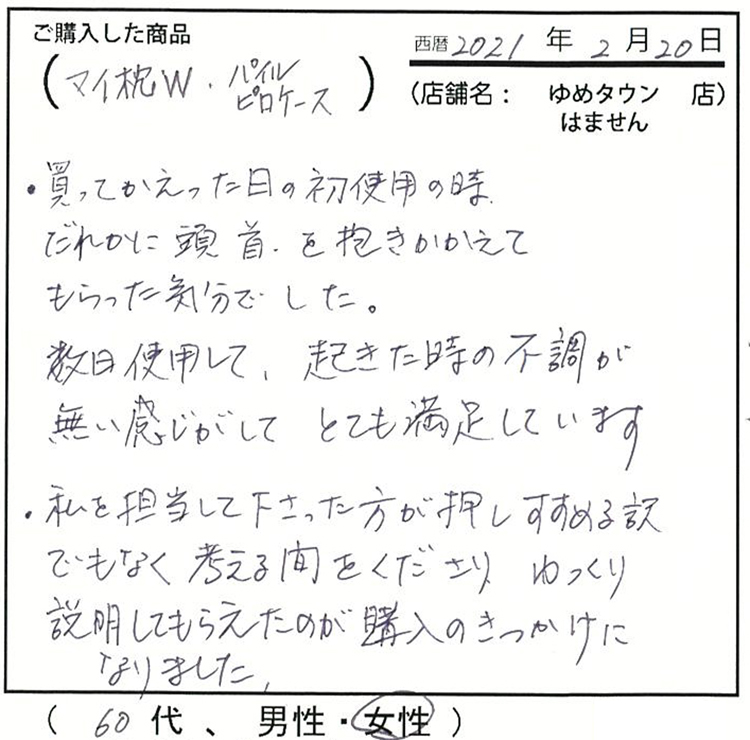 ご購入した商品
西暦2021年2月20日
(マイ枕W・パイル
ピロケース)
(店舗名： ゆめタウン 店)
はません
・買ってかえった日の初使用の時、
だれかに頭首を抱きかかえて
もらった気分でした。
数日使用して、起きた時の不調が
無い感じがしてとても満足しています
・私を担当して下さった方が押しすすめる訳
でもなく考える間をくださり ゆっくり
説明してもらえたのが購入のきっかけに
なりました。
(60代、男性・女性)